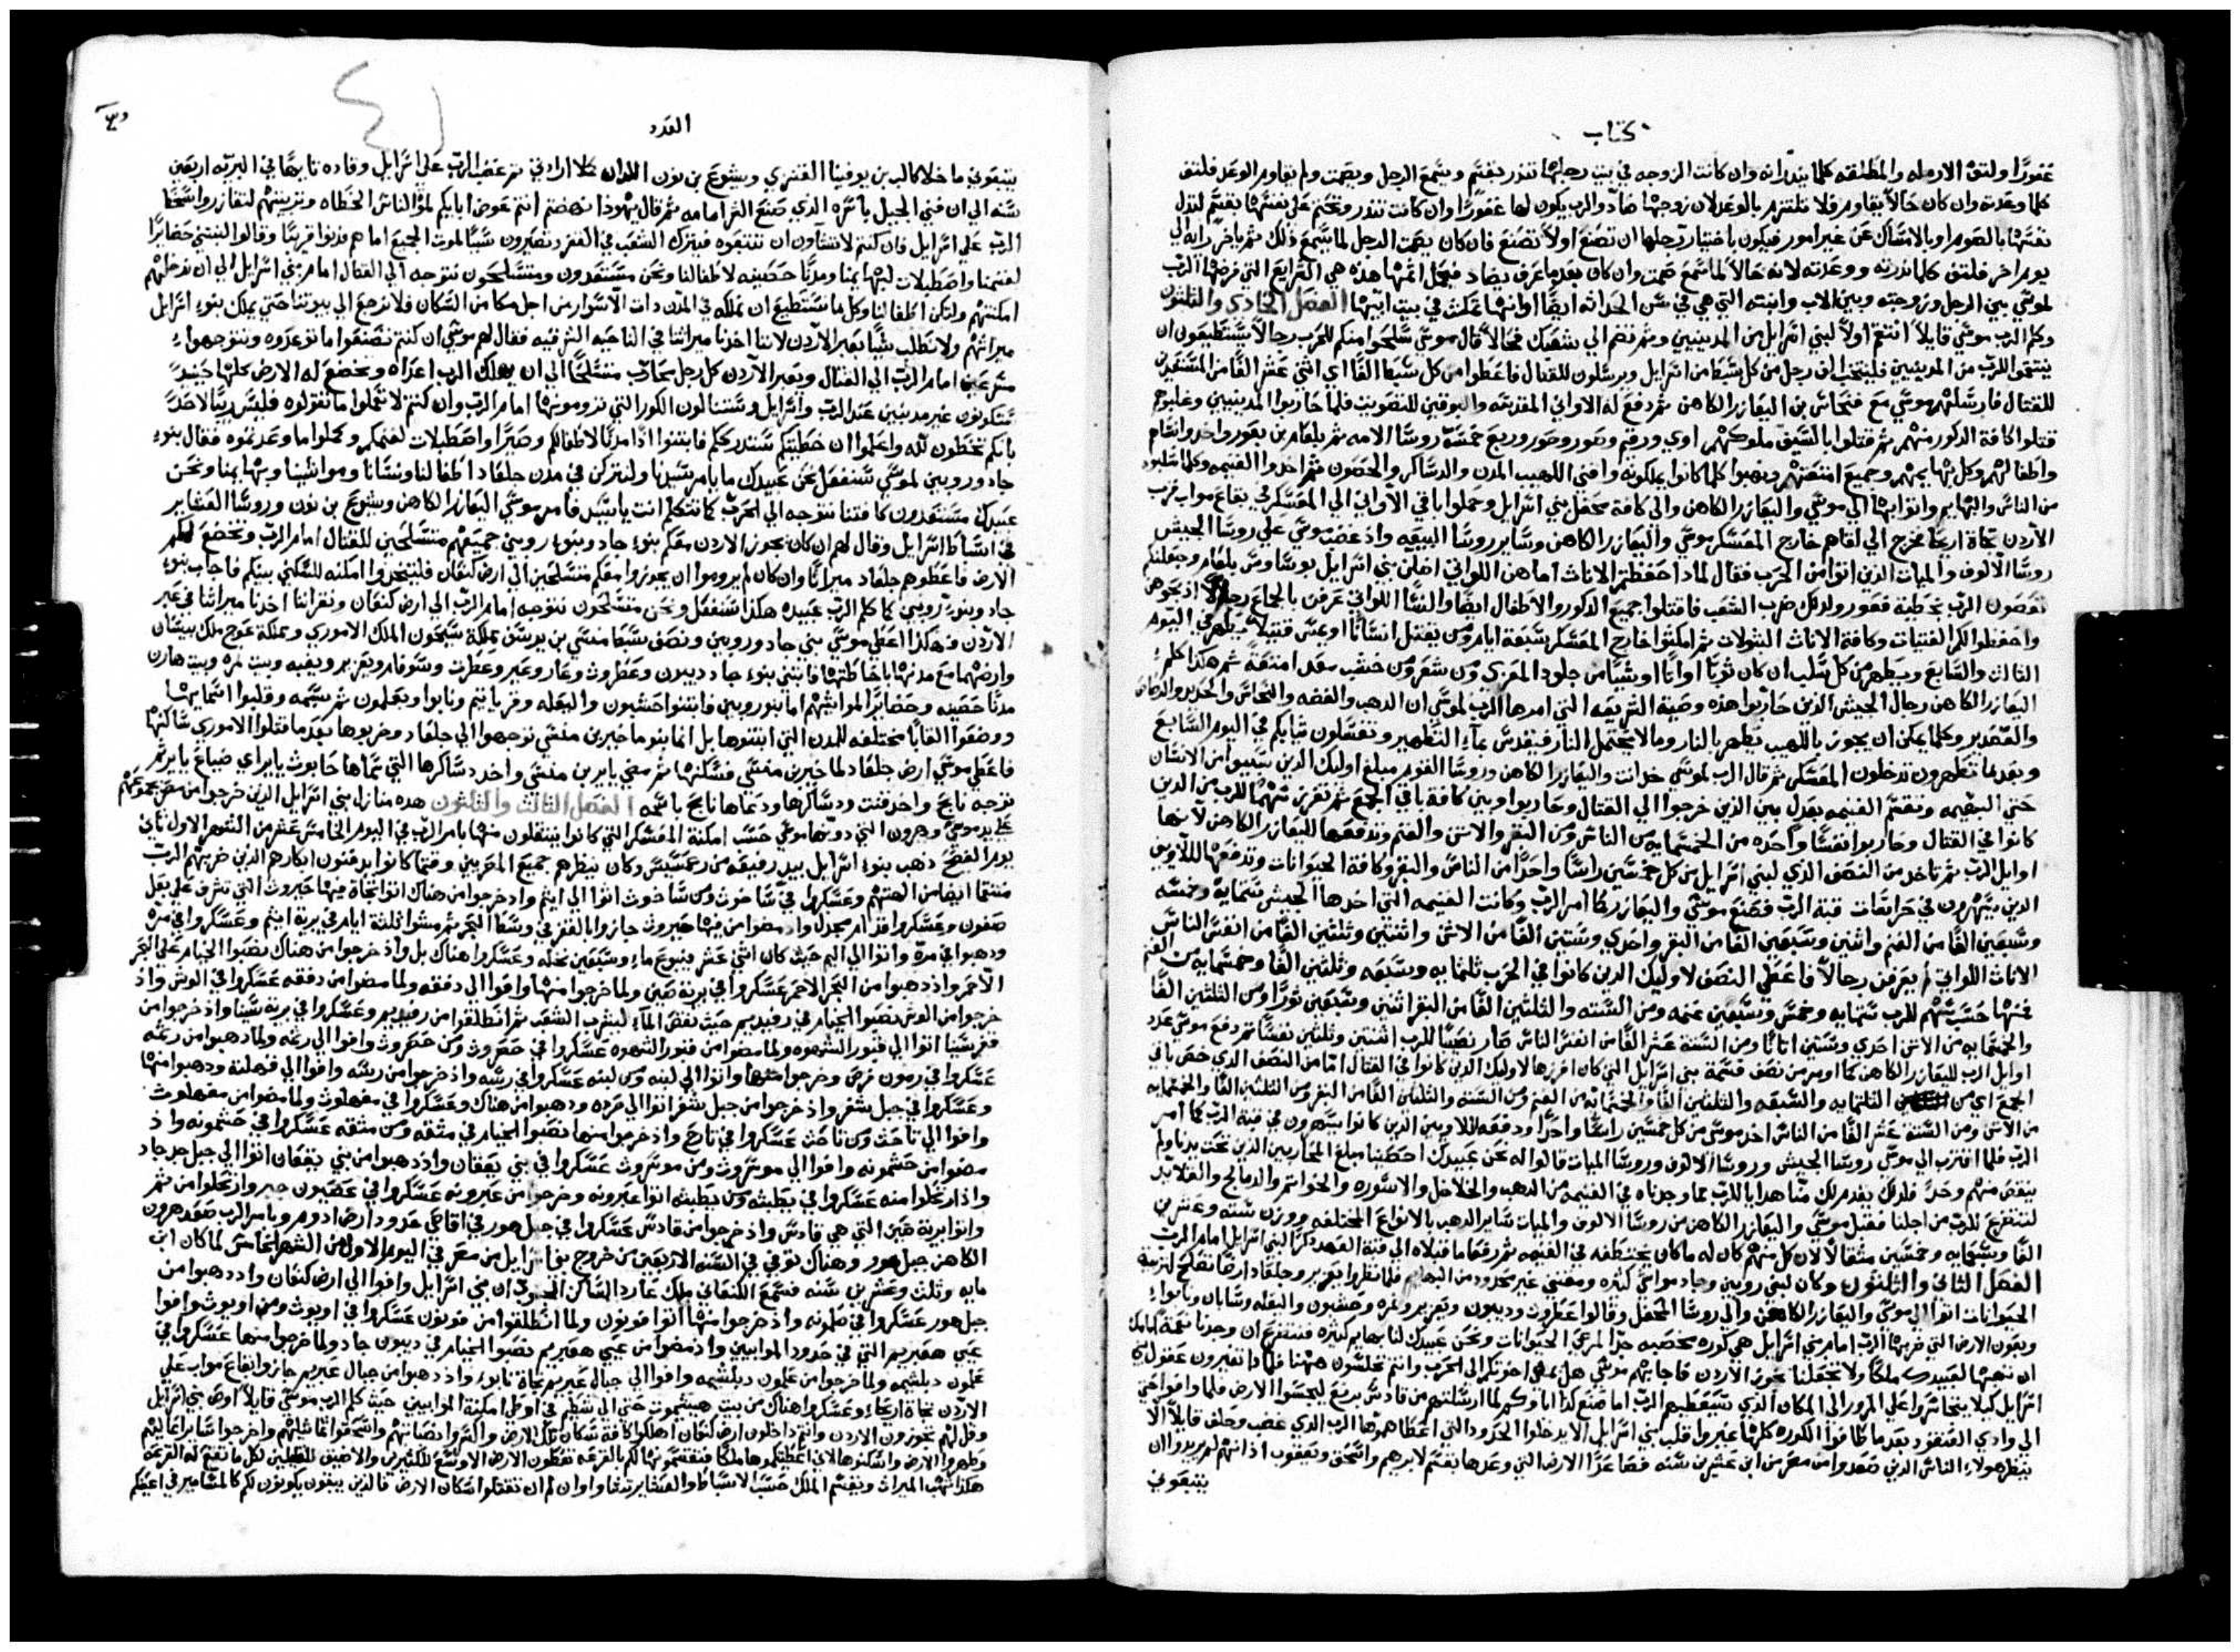 كتاب
غفورًا ولتفِ الارمله والمطلقه كلما ينذرانه وان كانت الزوجه في بيت رجلها تنذر بقسَم ويسمع الرجل ويصمت ولم يقاوم الوعد فلتفِ
كلما وعدت وان كان حالاً يقاوم فلا تلتزم بالوعد لان زوجها ضاد والرب يكون لها غفورًا وان كانت تنذر وتحتم على نفسها بقسم لتذل
نفسها بالصوم او بالامساك عن غير امور فيكون باختيار رجلها ان تصنع او لا تصنع فان كان يصمت الرجل لما يسمع ذلك ثم ياخر رايه الي
يوم اخر فلتفِ كلما نذرته ووعدته لانه حالاً لما سمع صمت وان كان بعد ما عرف يضاد فيحمل اثمها هذه هي الشرايع التي فرضها الرب
لموسي بين الرجل وزوجته وبين الاب وابنته التي هي في سن الحداثه ايضًا او انها تمكث في بيت ابيها الفصل الحادي والثلثون
وكلم الرب موسي قايلاً انتقم اولاً لبني اسرايل من المدينيين وثم تضم الي شعبك فحالاً قال موسي سلحوا منكم للحرب رجالاً يستطيعون ان
ينتقموا للرب من المدينيين فلينتخب الف رجل من كل سبط من اسرايل ويرسلون للقتال فاعطوا من كل سبط الفًا اي اثني عشر الفًا من المستعدين
للقتال فارسلهم موسي مع فنحاس بن اليعازر الكاهن ثم دفع له الاواني المقدسه والبوقين للتصويت فلما حاربوا المدينيين وغلبوهم
قتلوا كافة الذكور منهم ثم قتلوا بالسيف ملوكهم اوي ورقم وصور وحور وربع خمسة روسا الامه ثم بلعام بن بعور واخذوا نساهم
واطفالهم وكل بهايمهم وجميع امتعتهم ونهبوا كلما كانوا يملكونه وافني اللهيب المدن والدساكر والحصون ثم اخذوا الغنيمه وكلما سلبوه
من الناس والبهايم واتوا بها الي موسي واليعازر الكاهن والي كافة محفل بني اسرايل وحملوا باقي الاواني الي المعسكر في بقاع مواب قرب
الاردن تجاه اريحا فخرج الي لقاهم خارج المعسكر موسي واليعازر الكاهن وساير روسا البيعه واذ غضب موسي علي روسا الجيش
روسا الالوف والميات الذين اتوا من الحرب فقال لماذا حفظتم الاناث اما هن اللواتي اضلين بني اسرايل بوساوس بلعام وجعلنكم
تعصون الرب بخطية فغور ولذلك ضرب الشعب فاقتلوا جميع الذكور والاطفال ايضًا والنسا اللواتي عرفن بالجماع رجالاً اذبحوهن
واحفظوا لكم الفتيات وكافة الاناث البتولات ثم امكثوا خارج المعسكر سبعة ايام ومن يقتل انسانًا او يمس قتيلاً يطهر في اليوم
الثالث والسابع ويطهر من كل سلب ان كان ثوبًا او اناًا او شيًا من جلود المعزي ومن شعر ومن خشب معد امتعة ثم هكذا كلم
اليعازر الكاهن رجال الجيش الذين حاربوا هذه وصية الشريعه التي امر بها الرب لموسي ان الذهب والفضه والنحاس والحديد والرصاص
والقصدير وكلما يمكن ان يجوز باللهيب تطهر بالنار وما لا يحتمل النار فيقدس بماء التطهير وتغسلون ثيابكم في اليوم السابع
وبعد ما تطهرون تدخلون المعسكر ثم قال الرب لموسي خذ انت واليعازر الكاهن وروسا القوم مبلغ اوليك الذين سبيوا من الانسان
حتي البهيمه وتقسم الغنيمه بعدل بين الذين خرجوا الي القتال وحاربوا وبين كافة باقي الجمع ثم تفرز سهمًا للرب من الذين
كانوا في القتال وحاربوا نفسًا واحده من الخمسمايه من الناس ومن البقر والاتن والغنم وتدفعها لليعازر الكاهن لانها
اوايل الرب ثم تاخذ من النصف الذي لبني اسرايل من كل خمسين راسًا واحدًا من الناس والبقر وكافة الحيوانات وتدفعها للاويين
الذين يسهرون في حراسات قبة الرب فصنع موسي واليعازر كما امر الرب وكانت الغنيمه التي اخذها الجيش ستمايه وخمسه
وسبعين الفًا من الغنم واثنين وسبعين الفًا من البقر واحدي وستين الفًا من الاتن واثنين وثلثين الفًا من انفس الناس
الاناث اللواتي لم يعرفن رجالاً فاعطي النصف لاوليك الذين كانوا في الحرب ثلثمايه وسبعه وثلثين الفًا وخمسمايه من الغنم
فمنها حسب سهم للرب ستمايه وخمس وسبعين غنمه ومن السته والثلثين الفًا من البقر اثنين وسبعين ثورًا ومن الثلثين الفًا
والخمسمايه من الاتن احدي وستين اتانًا ومن الستة عشر الفًا من انفس الناس صار نصيبًا للرب اثنتين وثلثين نفسًا ثم دفع موسي عدد
اوايل الرب لليعازر الكاهن كما اومر من نصف قسمة بني اسرايل التي كان افرزها لاوليك الذين كانوا في القتال اما من النصف الذي خص باقي
الجمع اي من الثلثمايه والسبعه والثلثين الفًا والخمسمايه من الغنم ومن السته والثلثين الفًا من البقر ومن الثلثين الفًا والخمسمايه
من الاتن ومن الستة عشر الفًا من الناس اخذ موسي من كل خمسين راسًا واحدًا ودفعه للاويين الذين كانوا يسهرون في قبة الرب كما امر
الرب فلما اقترب الي موسي روسا الجيش وروسا الالوف وروسا الميات قالوا له نحن عبيدك احصينا مبلغ المحاربين الذين تحت يدنا ولم
ينقص منهم وحدًا فلذلك يقدم لك منا هدايا للرب مما وجدناه في الغنيمه من الذهب والخلاخل والاسوره والخواتم والدمالج والقلايد
لتتضرع للرب من اجلنا فقبل موسي واليعازر الكاهن من روسا الالوف والميات ساير الذهب بالانواع المختلفه ووزن سته وعشرين
الفًا وسبعمايه وخمسين مثقالاً لان كل منهم كان له ما كان يختطفه في الغنيمه ثم رفعا ما قبلاه الي قبة العهد ذكرًا لبني اسرايل امام الرب
الفصل الثاني والثلثون وكان لبني روبين وجاد مواشي كثيره ومقتني غير محدود من البهايم فلما نظروا يعزير وجلعاد ارضًا تصلح لتربية
الحيوانات اتوا الي موسي واليعازر الكاهن والي روسا المحفل وقالوا عطروت وديبون ويعزير ونمره وحشبون والبعله وسابان ونابواء
وبعون الارض التي ضربها الرب امام بني اسرايل هي كوره مخصبه جدًا لمرعي الحيوانات ونحن عبيدك لنا بهايم كثيره فنتضرع ان وجدنا نعمة امامك
ان تهبها لعبيدك ملكًا ولا تجعلنا نجوز الاردن فاجابهم موسي هل يمضي اخوتكم الي الحرب وانتم تجلسون ههنا فلماذا تغيرون عقول بني
اسرايل كيلا يتجاسروا علي المرور الي المكان الذي سيعطيهم الرب اما صنع كذا اباوكم لما ارسلتهم من قادش برنيع ليجسوا الارض فلما وافوا حتي
الي وادي العنقود بعد ما طافوا الكوره كلها غيروا قلب بني اسرايل الا يدخلوا الحدود التي اعطاهموها الرب الذي غضب وحلف قايلاً الّا
ينظر هولاء الناس الذين صعدوا من مصر من ابن عشرين سنه فصاعدًا الارض التي وعدها بقسم لابرهيم واسحق ويعقوب اذ انهم لم يريدوا ان
يتبعوني
العدد
يتبعوني ما خلا كالب بن يوفينا القنزي ويشوع بن نون اللذان كملا ارادتي ثم غضب الرب علي اسرايل وقاده تايهًا في البريه اربعين
سنه الي ان فني الجيل باسره الذي صنع الشر امامه ثم قال يهوذا نهضتم انتم عوض ابايكم نموّ الناس الخطاه وتربيتهم لتفازروا سخط
الرب علي اسرايل فان كنتم لا تشاون ان تتبعوه فيترك الشعب في القفر وتصيرون سببًا لموت الجميع اما هم فدنوا قريبًا وقالوا لنبتني حضايرًا
لغنمنا واصطبلات لبهايمنا ومدنًا حصينه لاطفالنا ونحن مستعدون ومتسلحون نتوجه الي القتال امام بني اسرايل الي ان ندخلهم
امكنتهم ولتكن اطفالنا وكل ما نستطيع ان نملكه في المدن ذات الاسوار من اجل مكامن السكان فلا نرجع الي بيوتنا حتي يملك بنوء اسرايل
ميراثهم ولا نطلب شيًا بعبر الاردن لاننا اخذنا ميراثنا في الناحيه الشرقيه فقال لهم موسي ان كنتم تصنعوا ما توعدوه وتتوجهواء
مسرعين امام الرب الي القتال ويعبر الاردن كل رجل محارب متسلحًا الي ان يهلك الرب اعداه وتخضع له الارض كلها حينيذٍ
تكونون غير مدنبين عند الرب واسرايل وستنالون الكور التي تروموها امام الرب وان كنتم لا تعملوا ما تقولوه فليس ريبًا لاحدٍ
بانكم تخطون لله واعلموا ان خطيتكم ستدرككم فابتنوا اذًا مدنًا لاطفالكم وصيرًا واصطبلات لغنمكم وكملوا ما وعدتموه فقال بنوء
جاد وروبين لموسي سنفعل نحن عبيدك ما يامر سيدنا ولنترك في مدن جلعاد اطفالنا ونسانا ومواشينا وبهايمنا ونحن
عبيدك مستعدون كافتنا نتوجه الي الحرب كما تتكلم انت يا سيد فامر موسي اليعازر الكاهن ويشوع بن نون وروسا العشاير
في اسباط اسرايل وقال لهم ان كان يجوز الاردن معكم بنوء جاد وبنوء روبين جميعهم متسلحين للقتال امام الرب وتخضع لكم
الارض فاعطوهم جلعاد ميراثًا وان كان لم يروموا ان يجوزوا معكم متسلحين الي ارض كنعان فليتخذوا امكنه للسكني بينكم فاجاب بنوء
جاد وبنوء روبين كما كلم الرب عبيده هكذا سنفعل ونحن متسلحون نتوجه امام الرب الي ارض كنعان ونقر اننا اخذنا ميراثنا في عبر
الاردن فهكذا اعطي موسي بني جاد وروبين ونصف سبط منسي بن يوسف مملكة سيحون الملك الاموري ومملكة عوج ملك بيسان
وارضهما مع مدنها باحاطتها فابتني بنوء جاد ديبون وعطروث وعار وعير وعطرت وسوفام ويعزير ويعبه وبيت نمره وبيت هارن
مدنًا حصينه وحضايرًا لمواشيهم اما بنو روبين فابتنوا حشبون والبعله وقرياتيم ونابوا وبعلمون ثم سبمه وقلبوا اسماها
ووضعوا القابًا مختلفه للمدن التي ابتنوها بل انما بنو ماخير بن منسي توجهوا الي جلعاد وخربوها بعد ما قتلوا الاموري ساكنها
فاعطي موسي ارض جلعاد لماخير بن منسي فسكنها ثم مضي يابر بن منسي واخذ دساكرها التي سماها حابوث يابر اي ضياع يابر ثم
توجه نابح واخذ قنت ودساكرها ودعاها نابح باسمه الفصل الثالث والثلثون هذه منازل بني اسرايل الذين خرجوا من مصر بجموعهم
علي يد موسي وهرون التي دونها موسي حسب امكنة المعسكر التي كانوا ينتقلون منها بامر الرب في اليوم الخامس عشر من الشهر الاول ثاني
يوم الفصح ذهب بنوء اسرايل بيد رفيعه من رعمسيس وكان ينظرهم جميع المصريين وقتما كانوا يدفنون ابكارهم الذين ضربهم الرب
منتقمًا ايضًا من الهتهم وعسكروا في ساخوث ومن ساخوث اتوا الي ايثم واذ خرجوا من هناك اتوا تجاه فيها حيروث التي تشرف علي بعل
صفون وعسكروا قدام مجدل واذ مضوا من فيها حيروث جازوا بالقفر في وسط البحر ثم مشوا ثلثة ايام في برية ايثم وعسكروا في مره
وذهبوا في مره واتوا الي اليم حيث كان اثني عشر ينبوع ماء وسبعين نخله وعسكروا هناك بل واذ خرجوا من هناك نصبوا الخيام علي البحر
الاحمر واذ ذهبوا من البحر الاحمر عسكروا في برية صين ولما خرجوا منها وافوا الي دفقه ولما مضوا من دفقه عسكروا في الوش واذ
خرجوا من الوش نصبوا الخيام في رفيديم حيث نقص الماء ليشرب الشعب ثم انطلقوا من رفيديم وعسكروا في برية سينا واذ خرجوا من
قفر سينا اتوا الي قبور الشهوه ولما مضوا من قبور الشهوه عسكروا في حصروث ومن حصروث وافوا الي رثمه ولما ذهبوا من رثمه
عسكروا في رمون فرص وخرجوا منها واتوا الي لبنه ومن لبنه عسكروا في رسه واذ خرجوا من رسه وافوا الي قهلثه وذهبوا منها
وعسكروا في جبل شفر واذ خرجوا من جبل شفر اتوا الي حرده وذهبوا من هناك وعسكروا في مقهلوث ولما مضوا من مقهلوث
وافوا الي تاحث ومن تاحث عسكروا في تارح واذ خرجوا منها نصبوا الخيام في متقه ومن متقه عسكروا في حشمونه واذ
مضوا من حشمونه وافوا الي موسروث ومن موسروث عسكروا في بني يعقان واذ ذهبوا من بني يعقان اتوا الي جبل جدجاد
واذ ارتحلوا منه عسكروا في يطبثه ومن يطبثه اتوا عبرونه وخرجوا من عبرونه عسكروا في عصيون جبر وارتحلوا من ثم
واتوا برية صين التي هي قادس واذ خرجوا من قادس عسكروا في جبل هور في اقاصي حدود ارض ادوم وبامر الرب صعد هرون
الكاهن جبل هور وهناك توفي في السنه الاربعين من خروج بني اسرايل من مصر في اليوم الاول من الشهر الخامس لما كان ابن
مايه وثلث وعشرين سنه فسمع الكنعاني ملك عارد الساكن الجنوب ان بني اسرايل وافوا الي ارض كنعان واذ ذهبوا من
جبل هور عسكروا في صلمونه واذ خرجوا منها اتوا فونون ولما انطلقوا من فونون عسكروا في اوبوث ومن اوبوث وافوا
عيي هعبريم التي في حدود الموابيين واذ مضوا من عيي هعبريم نصبوا الخيام في ديبون جاد ولما خرجوا منها عسكروا في
علمون دبلثيمه ولما خرجوا من علمون دبلثيمه وافوا الي جبال عبريم تجاه نابواء واذ ذهبوا من جبال عبريم جازوا بقاع مواب علي
الاردن تجاه اريحاء وعسكروا هناك من بيت هيشيموت حتي ابل شطيم في اوطي امكنة الموابيين حيث كلم الرب موسي قايلاً اوص بني اسرايل
وقل لهم تجوزون الاردن وانتم داخلون ارض كنعان اهلكوا كافة سكان تلك الارض واكسروا نصابتهم واسحقوا تماثيلهم واخربوا ساير اعاليهم
وطهروا الارض واسكنوها لاني اعطيتكموها ملكًا فتقسموها لكم بالقرعه تعطون الارض الاوسع للكثيرين والاضيق للقليلين لكل ما تقع له القرعه
هكذا تهب الميراث ويقسم الملك حسب الاسباط والعشاير وان لم ان تقتلوا سكان الارض فالذين يبقون يكونون لكم كالمسامير في اعينكم